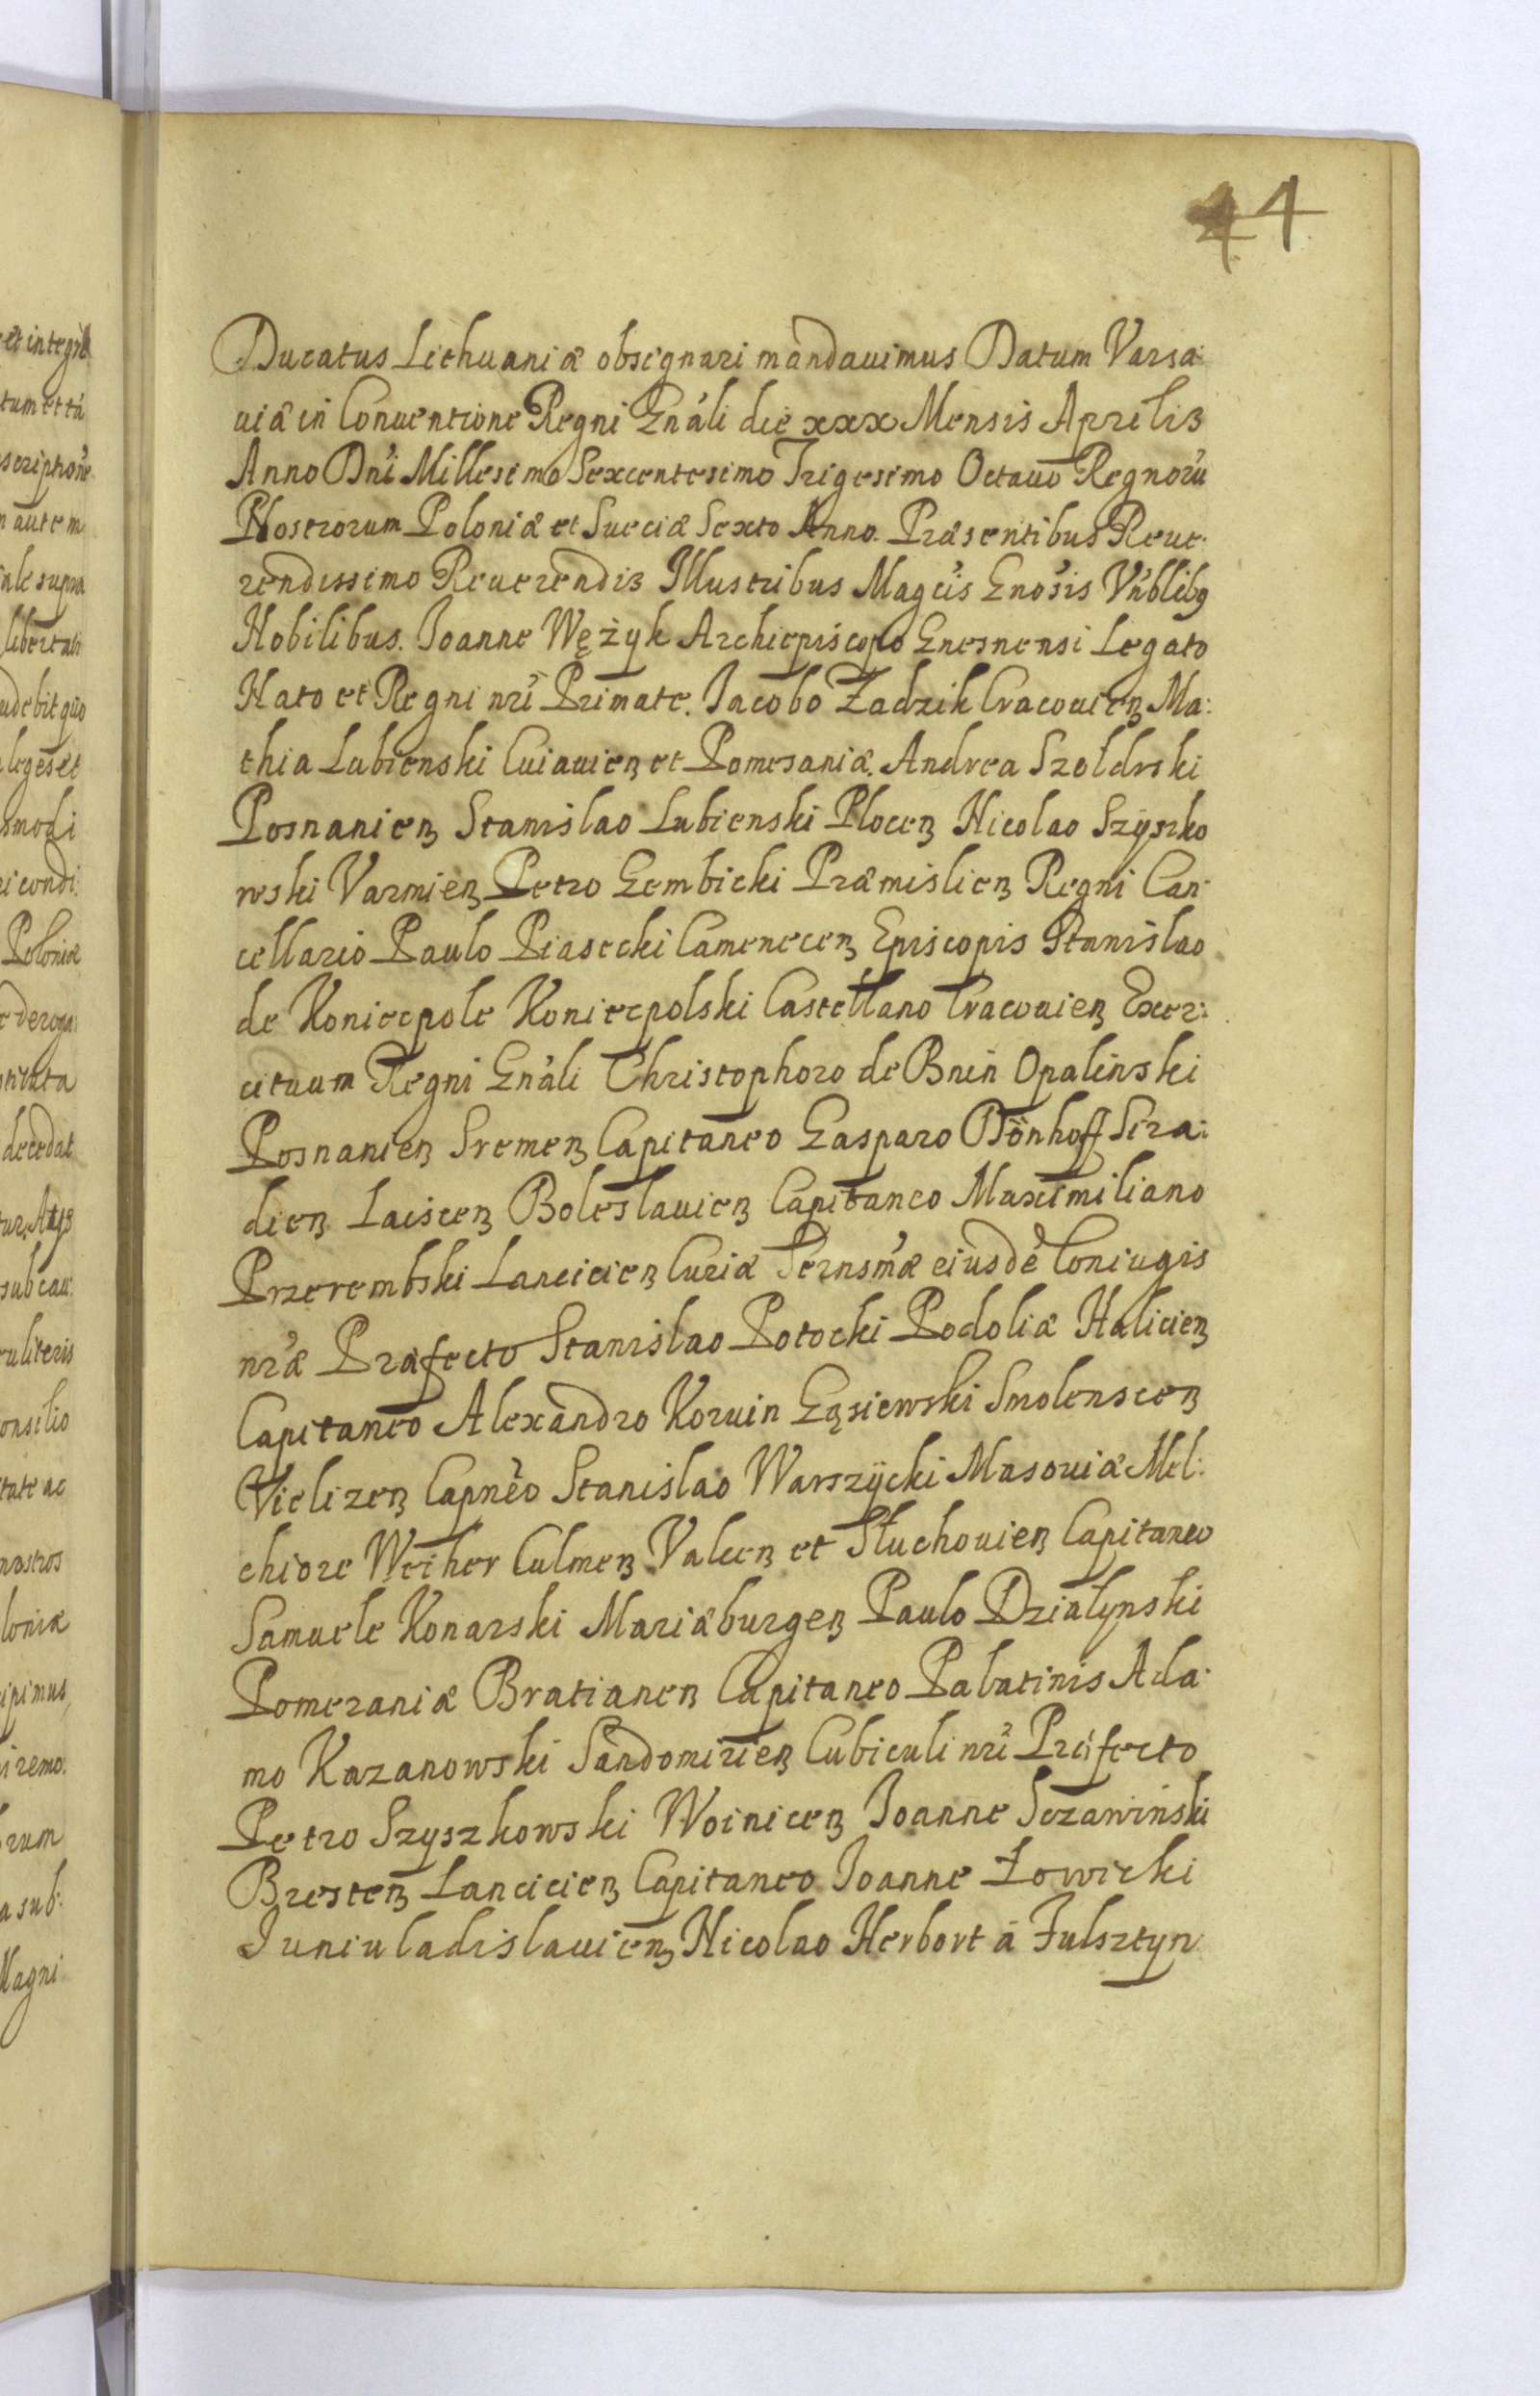 44
Ducatus Lithuaniæ obsignari mandauimus Datum Varsa:
uiæ in Conuentione Regni Gnáli die xxx Mensis Aprilis
Anno Dni Millesimo Sexcentesimo Trigesimo Octauo Regnorũ
Nostrorum Poloniæ et Sueciæ Sexto Anno. Præsentibus Reue:
rendissimo Reuerendis Illustribus Magcis Gnosis Vnblibg
Nobilibus. Joanne Wężyk Archiepiscopo Gnesnensi Legato
Nato et Regni nri Primate. Jacobo Zadzik Cracouieɳ Ma:
thia Lubienski Cuiauieɳ et Pomesaniæ. Andrea Szołdrski
Posnanieɳ Stanislao Lubienski Ploceɳ Nicolao Szyszko
wski Varmieɳ Petro Gembicki Præmislieɳ Regni Can:
cellario Paulo Piasecki Cameneceɳ Episcopis Stanislao
de Koniecpole Koniecpolski Castellano Cracouieɳ Exer:
cituum Regni Gnáli Christophoro de Bnin Opalinski
Posnanieɳ Sremeɳ Capitaneo Gasparo Dönhoff Sira:
dieɳ Laisceɳ Boleslauieɳ Capitaneo Maximiliano
Przerembski Lancicieɳ Curiæ Sernsmæ eiusdē Coniugis
nræ Præfecto Stanislao Potocki Podoliæ Halicieɳ
Capitaneo Alexandro Koruin Gąsiewski Smolensceɳ
Vielizeɳ Capnēo Stanislao Warszÿcki Masouiæ Mel:
chiore Weiher Culmeɳ Valceɳ et Słuchouieɳ Capitaneo
Samuele Konarski Mariæburgeɳ Paulo Działynski
Pomeraniæ Bratianeɳ Capitaneo Palatinis Ada:
mo Kazanowski Sandomirieɳ Cubiculi nri Præfecto
Petro Szyszkowski Woiniceɳ Joanne Sczawiński
Bresteɳ Lancicieɳ Capitaneo Joanne Łowicki
Juniuladislauieɳ Nicolao Herbort á Fulsztyn